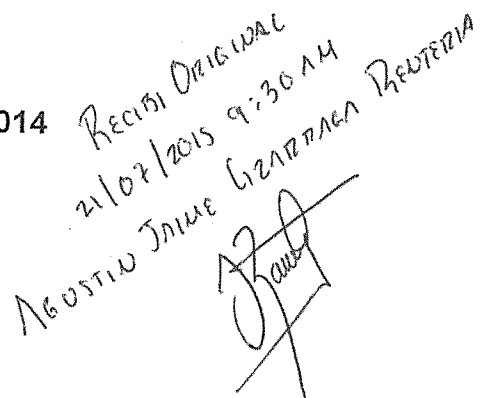 014
RECIBI ORIGINAL
21/07/2015 9:30 AM
AGUSTIN JAIME RENTERIA